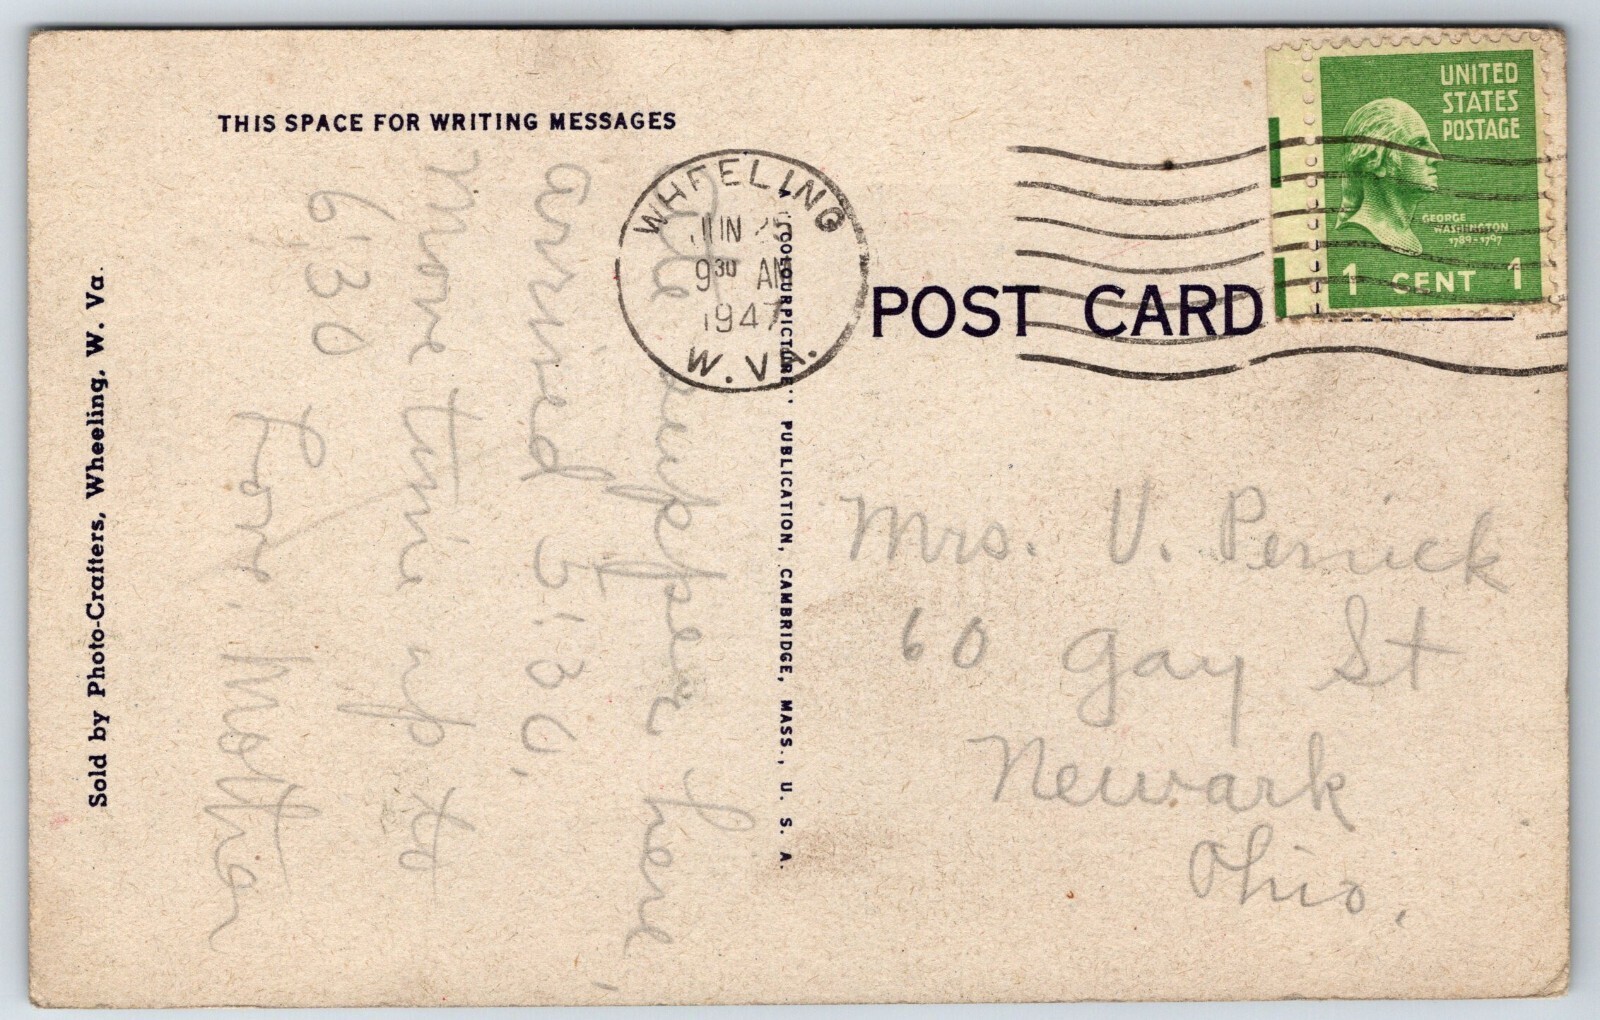 THIS SPACE FOR WRITING MESSAGES
Ate supper here,
arrived 5:30.
Move time up to
6:30
Love. Mother
Sold by Photo-Crafters, Wheeling, W. Va.
"COLOURPICTURE" PUBLICATION, CAMBRIDGE, MASS., U. S. A.
WHEELING
JUN 25
9 30 AM
1947
W. VA.
POST CARD
UNITED
STATES
POSTAGE
GEORGE
WASHINGTON
1789-1797
1 CENT 1
Mrs. V. Perrick
60 Gay St
Newark
Ohio.